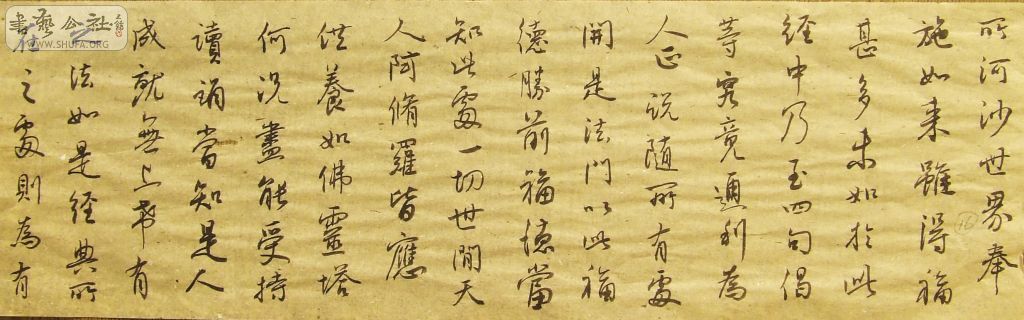 所河沙世界奉
施如来雖得福
甚多未如於此
経中乃至四句偈
等究竟通利為
人正說隨所有處
開是法門以此福
德勝前福德當
知此處一切世間天
人阿脩羅皆應
供養如佛靈塔
何況盡能受持
讀誦當知是人
成就無上希有
之法如是経典所
在之處則為有
書藝公社
WWW.SHUFA.ORG